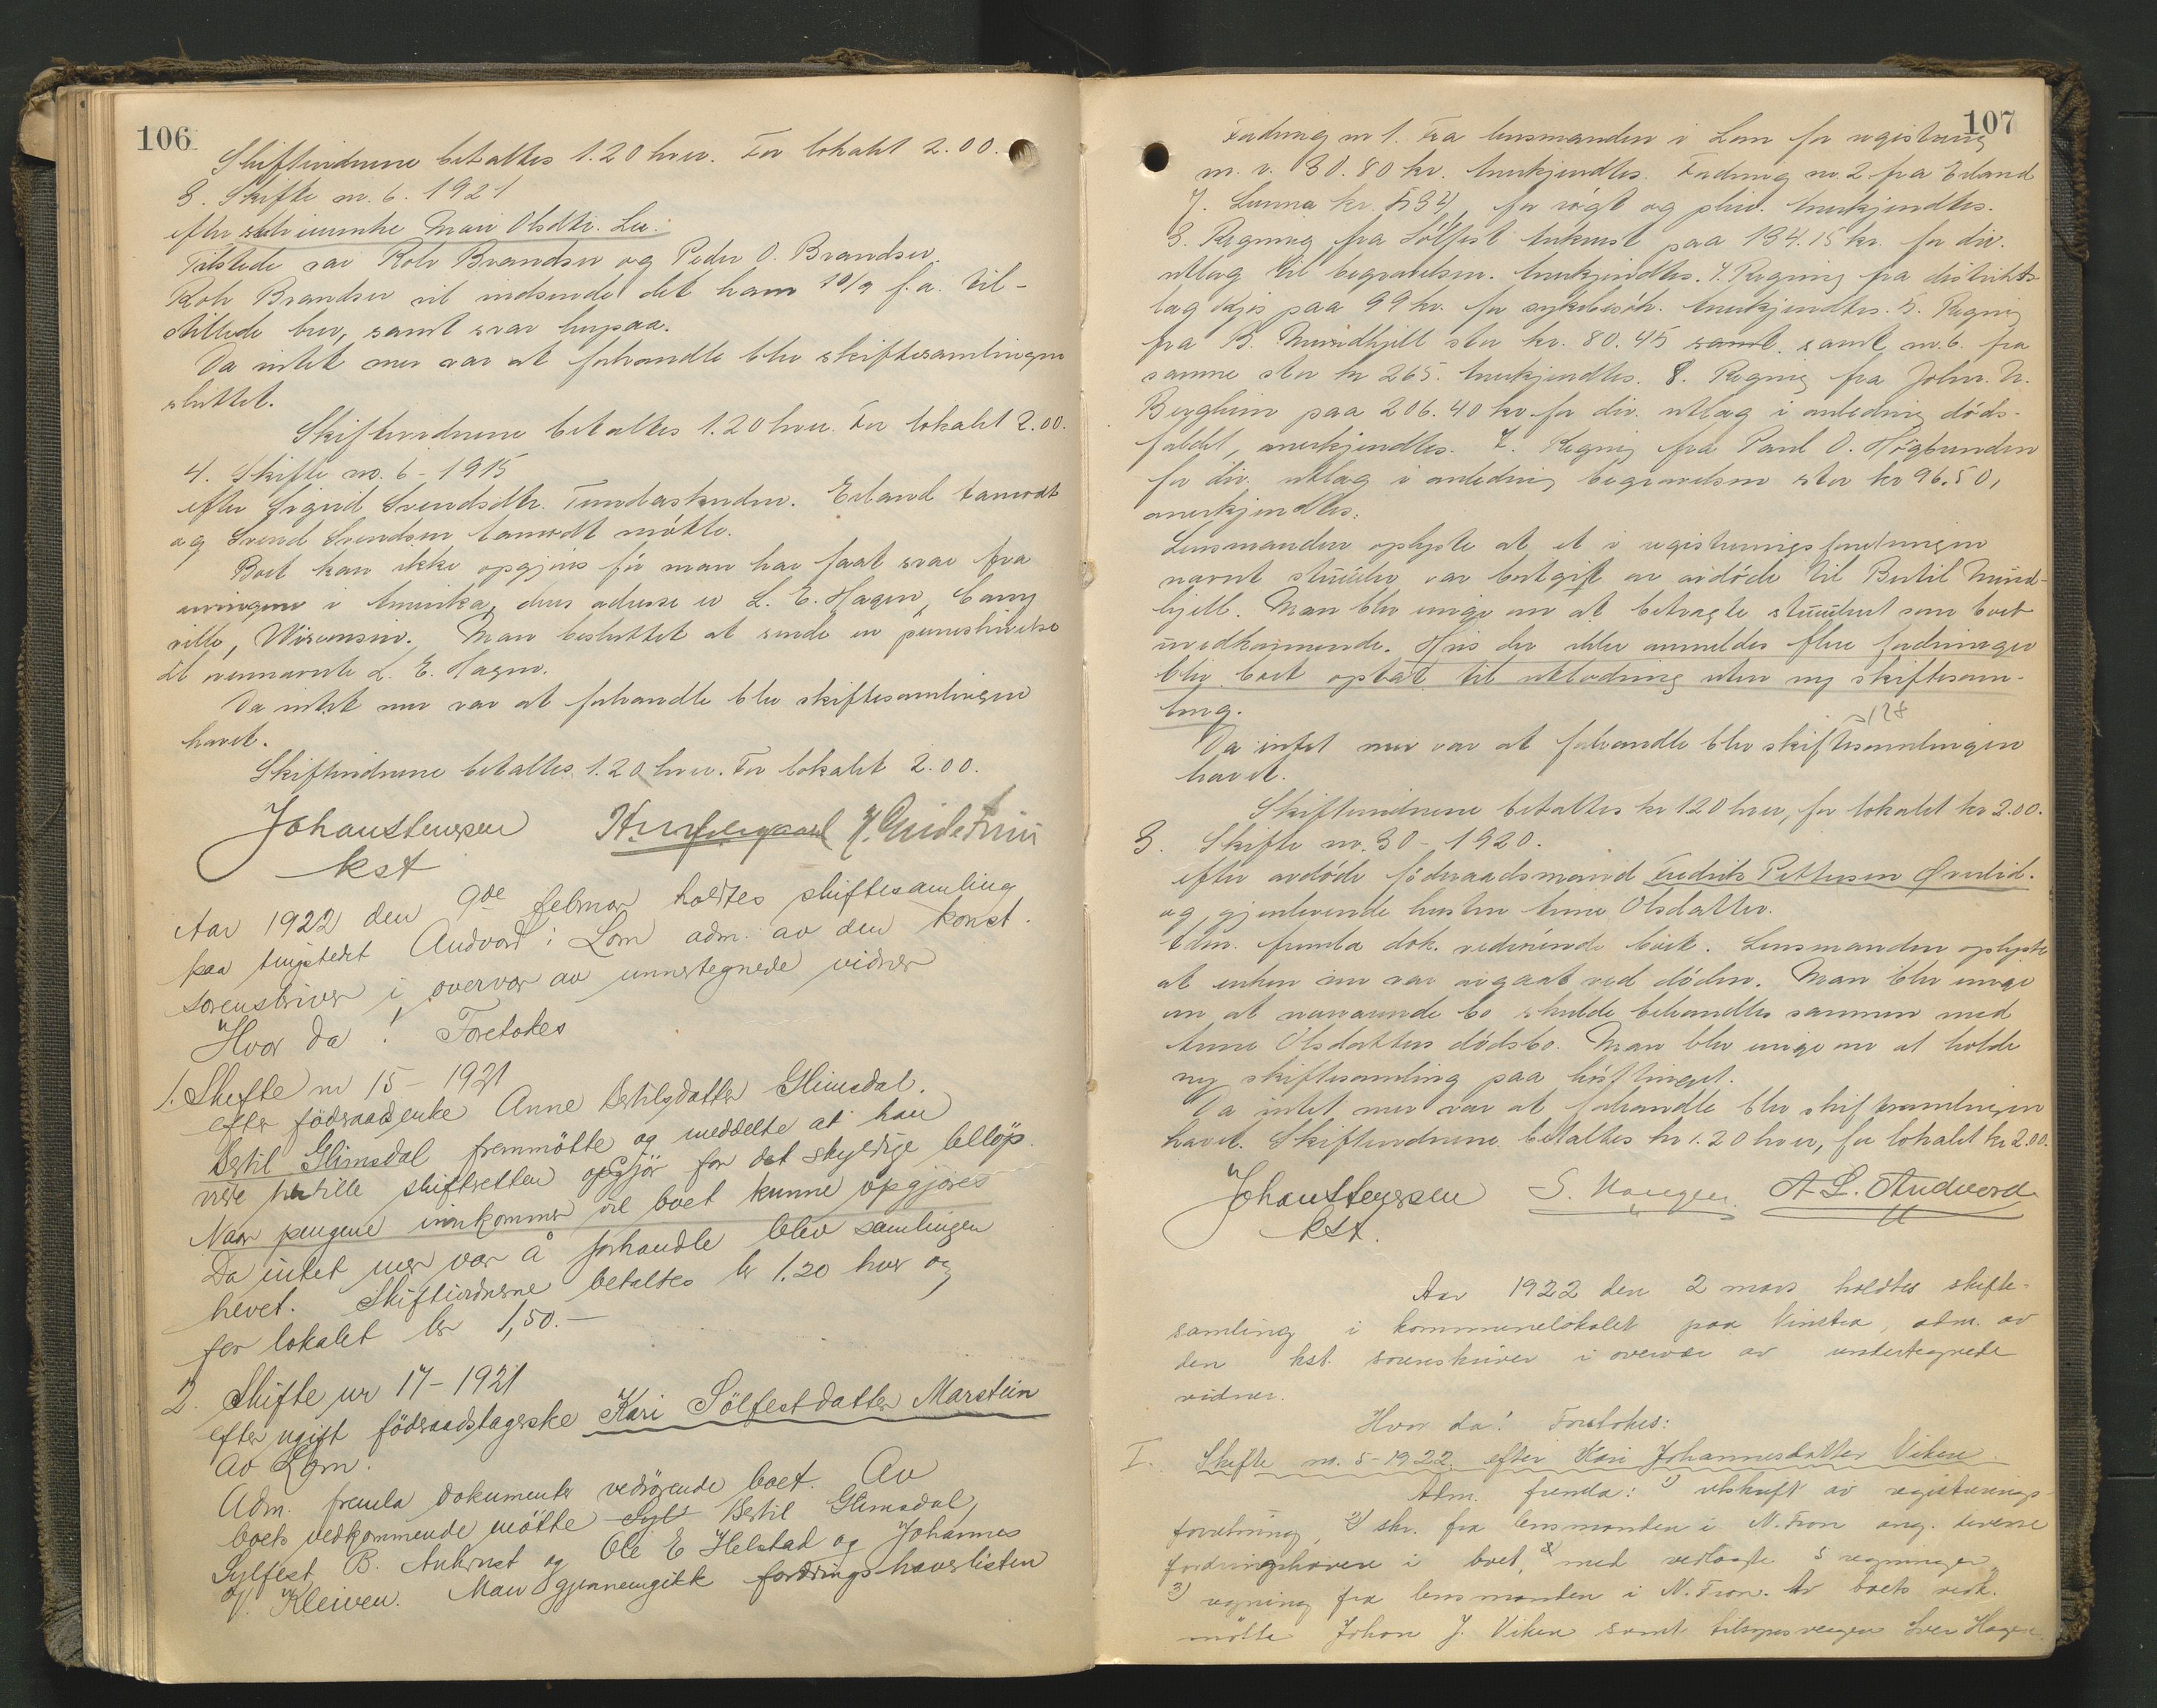 106
Skiftevidnene betaltes 1.20 hver. For lokalet 2.00.
3. Skifte nr. 6. 1921
efter Mari Olsdtr.
Tilstede var Rolv Brandser og Peder O. Brandser.
Rolv Brandser vil indsende det ham 10/9 f.a. til-
stillede brev, samt svar herpaa.
Da intet mer var at forhandle blev skiftesamlingen
sluttet.
Skiftevidnene betaltes 1.20 hver. For lokalet 2.00.
4. Skifte no. 6 - 1915
efter Sigrid Svendsdtr. Erland
og Svend Svendsen møtte.
Boet kan ikke opgjøres før man har faat svar fra
arvingene i Amerika, hvis adresse er L. E. Hagen,
ville, Wisconsin. Man besluttet at sende en
til L. E. Hagen.
Da intet mer var at forhandle blev skiftesamlingen
hævet.
Skiftevidnene betaltes 1.20 hver. For lokalet 2.00.
Johan Stenersen
kst
Aar 1922 den 9de februar holdtes skiftesamling
paa tingstedet Andvord i Lom adm. av den konst.
sorenskriver i overvær av unnertegnede vidner
Hvor da! Foretokes
1. Skifte nr 15 - 1921
efter föderaadsenke Anne Bertilsdatter Glimsdal.
Bertil Glimsdal fremmötte og meddelte at han
vilde stille skifteretten opgjör for det skyldige belöp.
Naar pengene innkommer vil boet kunne opgjøres
Da intet mer var å forhandle blev samlingen
hevet. Skiftevidnerne betaltes kr 1.20 hver og
for lokalet kr 1,50.-
2. Skifte nr 17 - 1921
efter ugift föderaadstagerske Kari Sölfestdatter Marstein
av Lom.
Adm. fremla dokumenter vedrörende boet. Av
boets vedkommende mötte Syl Bertil Glimsdal,
Sylfest B. Aukrust og Ole E Helstad og Johannes
Kleiven. Man gjennemgikk fordringshaverlisten
107
Fordring nr 1. Fra lensmanden i Lom for registrering
m. v. 30.80 kr. Anerkjendtes. Fordring nr. 2 fra Erland
J. kr. for røgt og pleie. Anerkjendtes.
3. Regning fra Sölfest Aukrust paa 134.15 kr. for div.
utlag til begravelsen. Anerkjendtes. 4. Regning fra distrikts-
læge paa 99 kr. for sykebesøk. Anerkjendtes. 5. Regning
fra B. stor kr. 80.45 samt. samt nr. 6. fra
samme stor kr 265. Anerkjendtes. 8. Regning fra Johs. N.
Bergheim paa 206.40 kr for div. utlag i anledning døds-
faldet, anerkjendtes. 7. Regning fra Paul O.
for div. utlag i anledning begravelsen stor kr 96.50,
anerkjendtes.
Lensmanden oplyste at et i registreringsforretningen
nævnt stueuhr var bortgit av avdøde til Bertil
Man blev enige om at betragte stueuhret som boet
uvedkommende. Hvis der ikke anmeldes flere fordringer
blir boet optat til utlodning uten ny skiftesam-
ling.
Da intet mer var at forhandle blev skiftesamlingen
hævet.
Skiftevidnene betaltes kr 1.20 hver, for lokalet kr 2.00.
3. Skifte nr. 30 - 1920.
efter avdøde föderaadsmand Fredrik Pettersen Øvrelid.
og gjenlevende hustru Anne Olsdatter.
Adm. fremla dok. vedrørende boet. Lensmanden oplyste
at enken nu var avgaat ved døden. Man blev enige
om at nærværende bo skulde behandles sammen med
Anne Olsdatters dödsbo. Man blev enige om at holde
ny skiftesamling paa høsttinget.
Da intet mer var at forhandle blev skiftesamlingen
hævet. Skiftevidnene betaltes kr 1.20 hver, for lokalet kr 2.00.
Johan Stenersen S. Haugen A. L. Andvord
kst.
Aar 1922 den 2 mars holdtes skifte-
samling i kommunelokalet paa Vinstra, adm. av
den kst. sorenskriver i overvær av undertegnede
vidner.
Hvor da! Foretokes:
I. Skifte no. 5 - 1922 efter Kari Johannesdatter Viken
Adm. fremla: 1) utskrift av registrerings-
forretning, 2) skr. fra lensmanden i N. Fron ang. diverse
fordringshavere i boet, med vedlagte 5 regninger,
3) regning fra lensmanden i N. Fron. Av boets vedk.
møtte Johan J. Viken samt tilsynsvergen Iver Hagen.